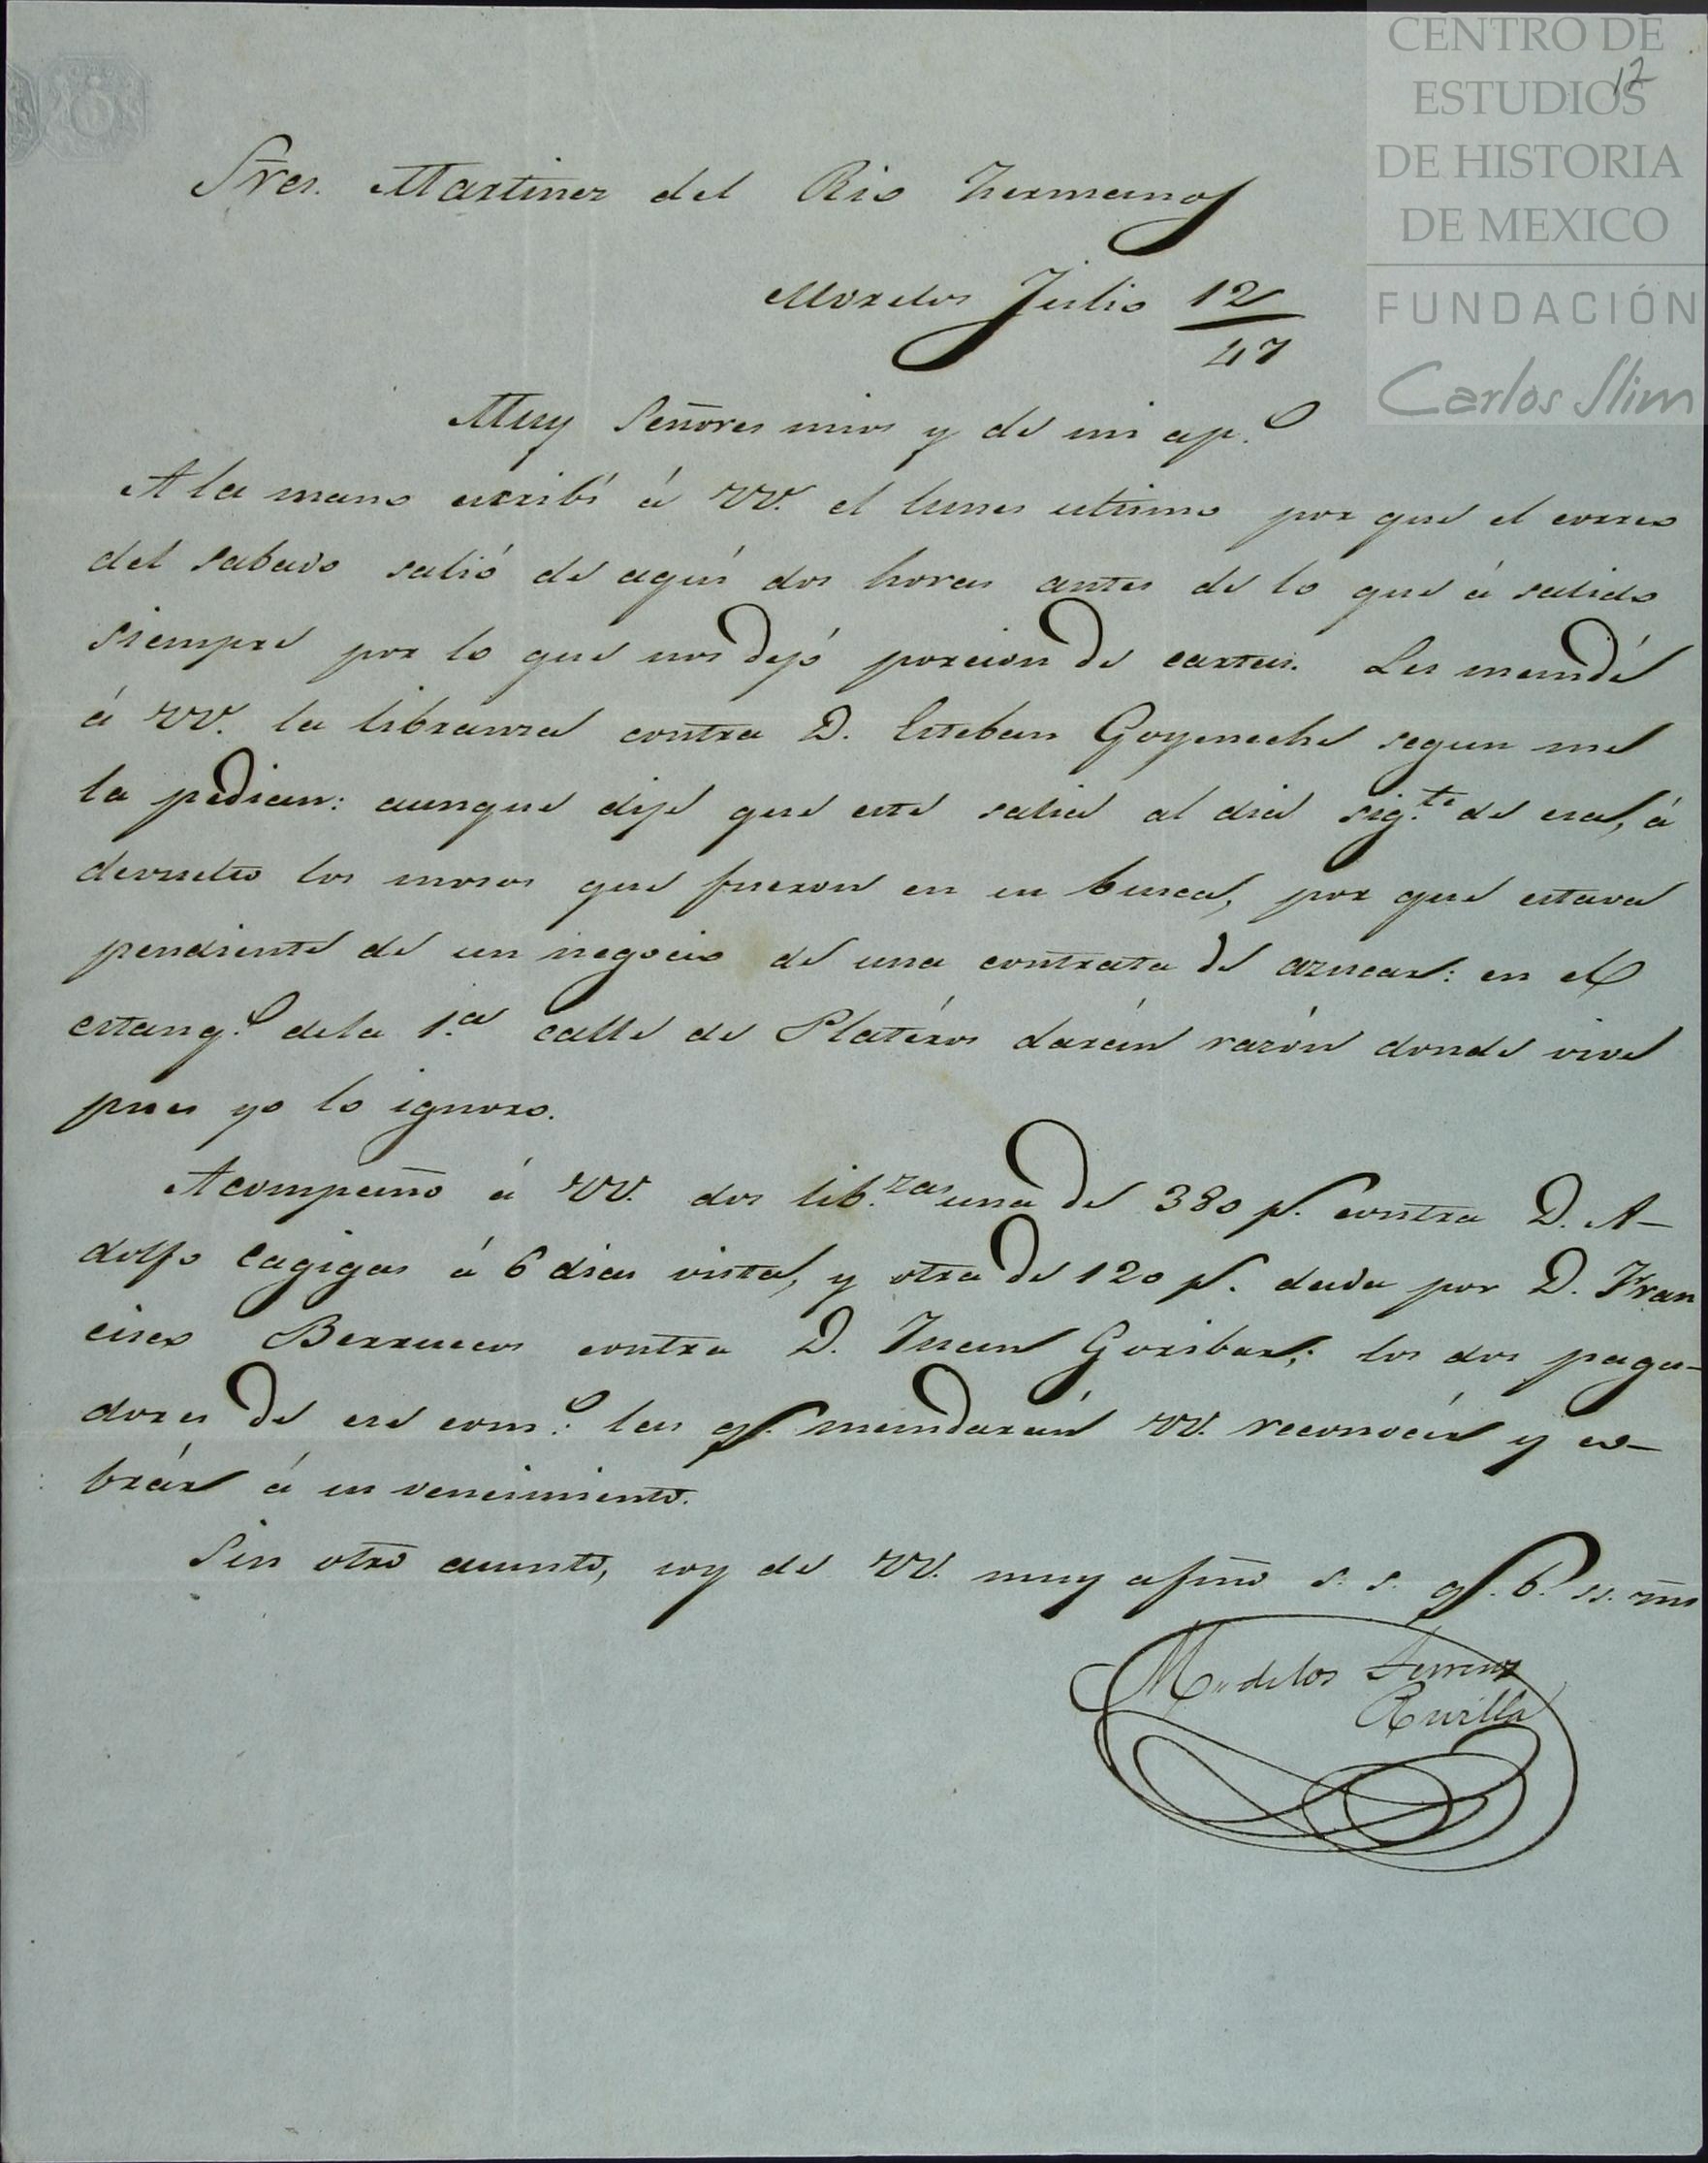 CENTRO DE
ESTUDIOS
DE HISTORIA
DE MEXICO
FUNDACIÓN
Carlos Slim
12
Sres. Martinez del Rio hermanos
Morelos Julio 12
47
Muy Señores mios y de mi ap.o
A la mano escribí á VV. el lunes utimo por que el correo
del sabado salió de aquí dos horas antes de lo que á salido
siempre por lo que nos dejó porcion de cartas. Les mandé
á VV. la libranza contra D. Esteban Goyeneche segun me
la pedian: aunque dije que este salia al dia sig.te de esa, á
devuelto los mosos que fueron en su busca, por que estava
pendiente de un negocio de una contrata de azucar: en el
estanq.o dela 1.a calle de Platéros darán razón donde vive
pues yo lo ignoro.
Acompaño á VV. dos lib.zas una de 380 p.s contra D. A-
dolfo Cagigas á 6 dias vista, y otra de 120 p.s dada por D. Fran
cisco Berruecos contra D. Juan Goribar; los dos paga-
dores de ese com.o: las q.e mandarán VV. reconocér y co-
brár á su vencimiento.
Sin otro asunto, soy de VV. muy afmo s. s. q. b. ss. ms
M. de los Terreros